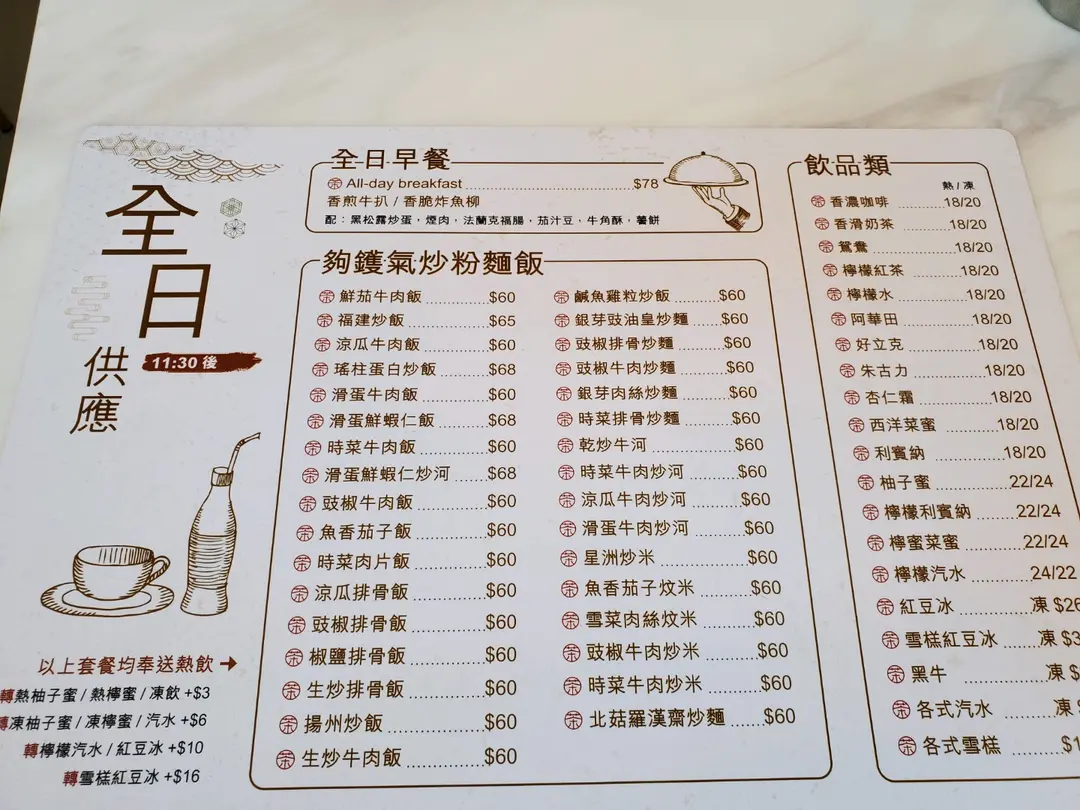 全日
供應
11:30 後
以上套餐均奉送熱飲
轉熱柚子蜜 / 熱檸蜜 / 凍飲 +$3
轉凍柚子蜜 / 凍檸蜜 / 汽水 +$6
轉檸檬汽水 / 紅豆冰 +$10
轉雪糕紅豆冰 +$16
全日早餐
All-day breakfast $78
香煎牛扒 / 香脆炸魚柳
配：黑松露炒蛋，煙肉，法蘭克福腸，茄汁豆，牛角酥，薯餅
夠鑊氣炒粉麵飯
鮮茄牛肉飯 $60
福建炒飯 $65
涼瓜牛肉飯 $60
瑤柱蛋白炒飯 $68
滑蛋牛肉飯 $60
滑蛋鮮蝦仁飯 $68
時菜牛肉飯 $60
滑蛋鮮蝦仁炒河 $68
豉椒牛肉飯 $60
魚香茄子飯 $60
時菜肉片飯 $60
涼瓜排骨飯 $60
豉椒排骨飯 $60
椒鹽排骨飯 $60
生炒排骨飯 $60
揚州炒飯 $60
生炒牛肉飯 $60
鹹魚雞粒炒飯 $60
銀芽豉油皇炒麵 $60
豉椒排骨炒麵 $60
豉椒牛肉炒麵 $60
銀芽肉絲炒麵 $60
時菜排骨炒麵 $60
乾炒牛河 $60
時菜牛肉炒河 $60
涼瓜牛肉炒河 $60
滑蛋牛肉炒河 $60
星洲炒米 $60
魚香茄子炆米 $60
雪菜肉絲炆米 $60
豉椒牛肉炒米 $60
時菜牛肉炒米 $60
北菇羅漢齋炒麵 $60
飲品類
熱 / 凍
香濃咖啡 18/20
香滑奶茶 18/20
鴛鴦 18/20
檸檬紅茶 18/20
檸檬水 18/20
阿華田 18/20
好立克 18/20
朱古力 18/20
杏仁霜 18/20
西洋菜蜜 18/20
利賓納 18/20
柚子蜜 22/24
檸檬利賓納 22/24
檸蜜菜蜜 22/24
檸檬汽水 24/22
紅豆冰 凍 $26
雪糕紅豆冰 凍 $3
黑牛 凍 $
各式汽水 凍
各式雪糕 $1